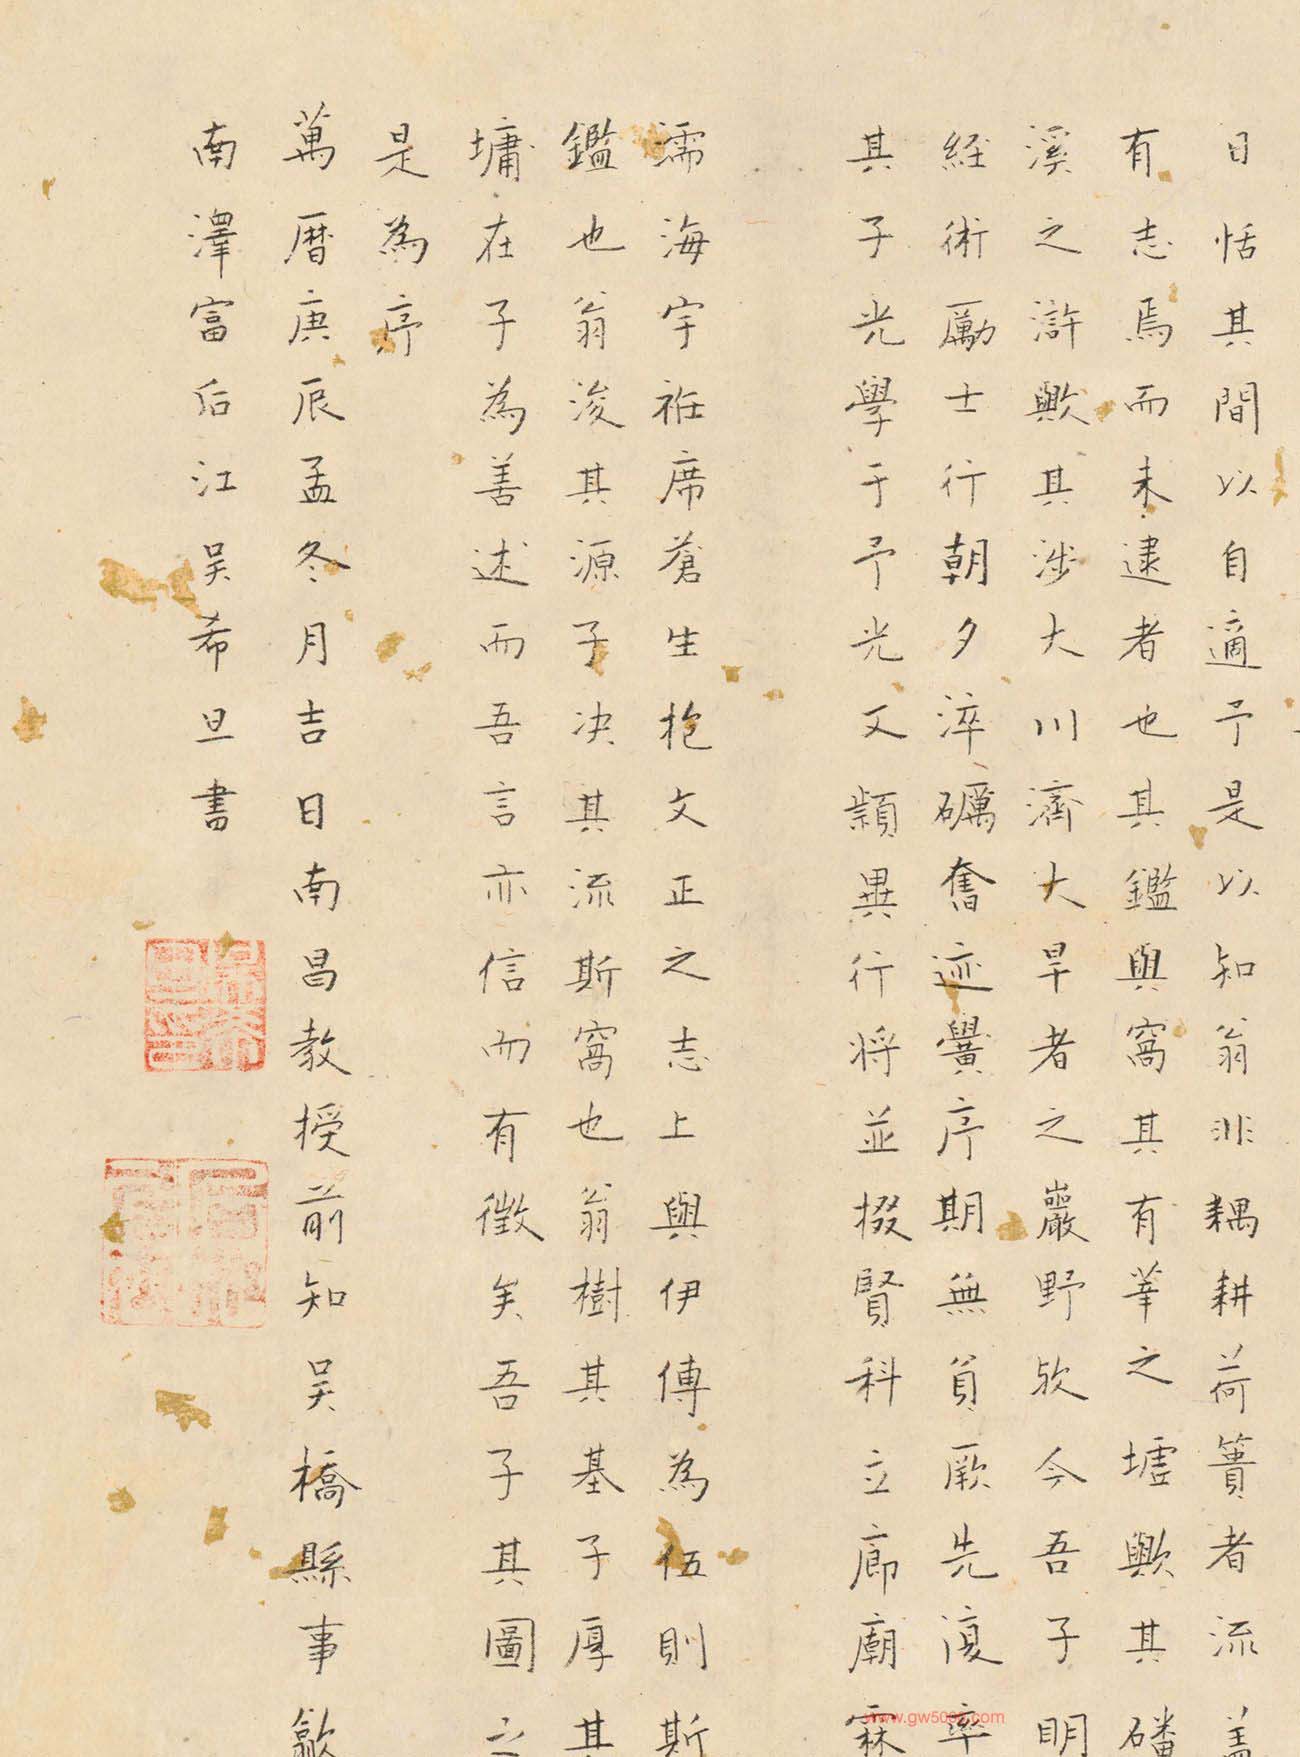 日恬其間以自適予是以知翁非耦耕荷蕢者流蓋
有志焉而未逮者也其鑑與窩其有莘之墟歟其磻
溪之滸歟其涉大川濟大旱者之巖野歟今吾子明
経術勵士行朝夕淬礪奮迹黌序期無負厥先復率
其子光學于予光文穎異行將並掇賢科立廊廟霖
濡海宇袵席蒼生抱文正之志上與伊傅為伍則斯
鑑也翁浚其源子决其流斯窩也翁樹其基子厚其
墉在子為善述而吾言亦信而有徵矣吾子其圖之
是為序
萬曆庚辰孟冬月吉日南昌教授前知吴橋縣事歙
南澤富后江吴希旦書
www.gw500.com